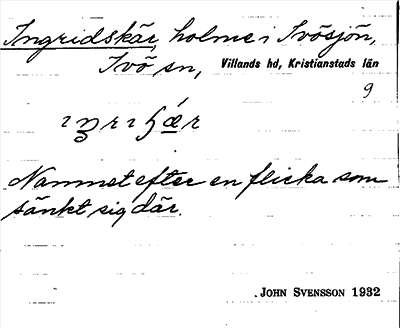 Ingridskär, holme i Ivösjön,
Ivö sn, Villands hd, Kristianstads län
9
Namnet efter en flicka som
sänkt sig där.
JOHN SVENSSON 1932